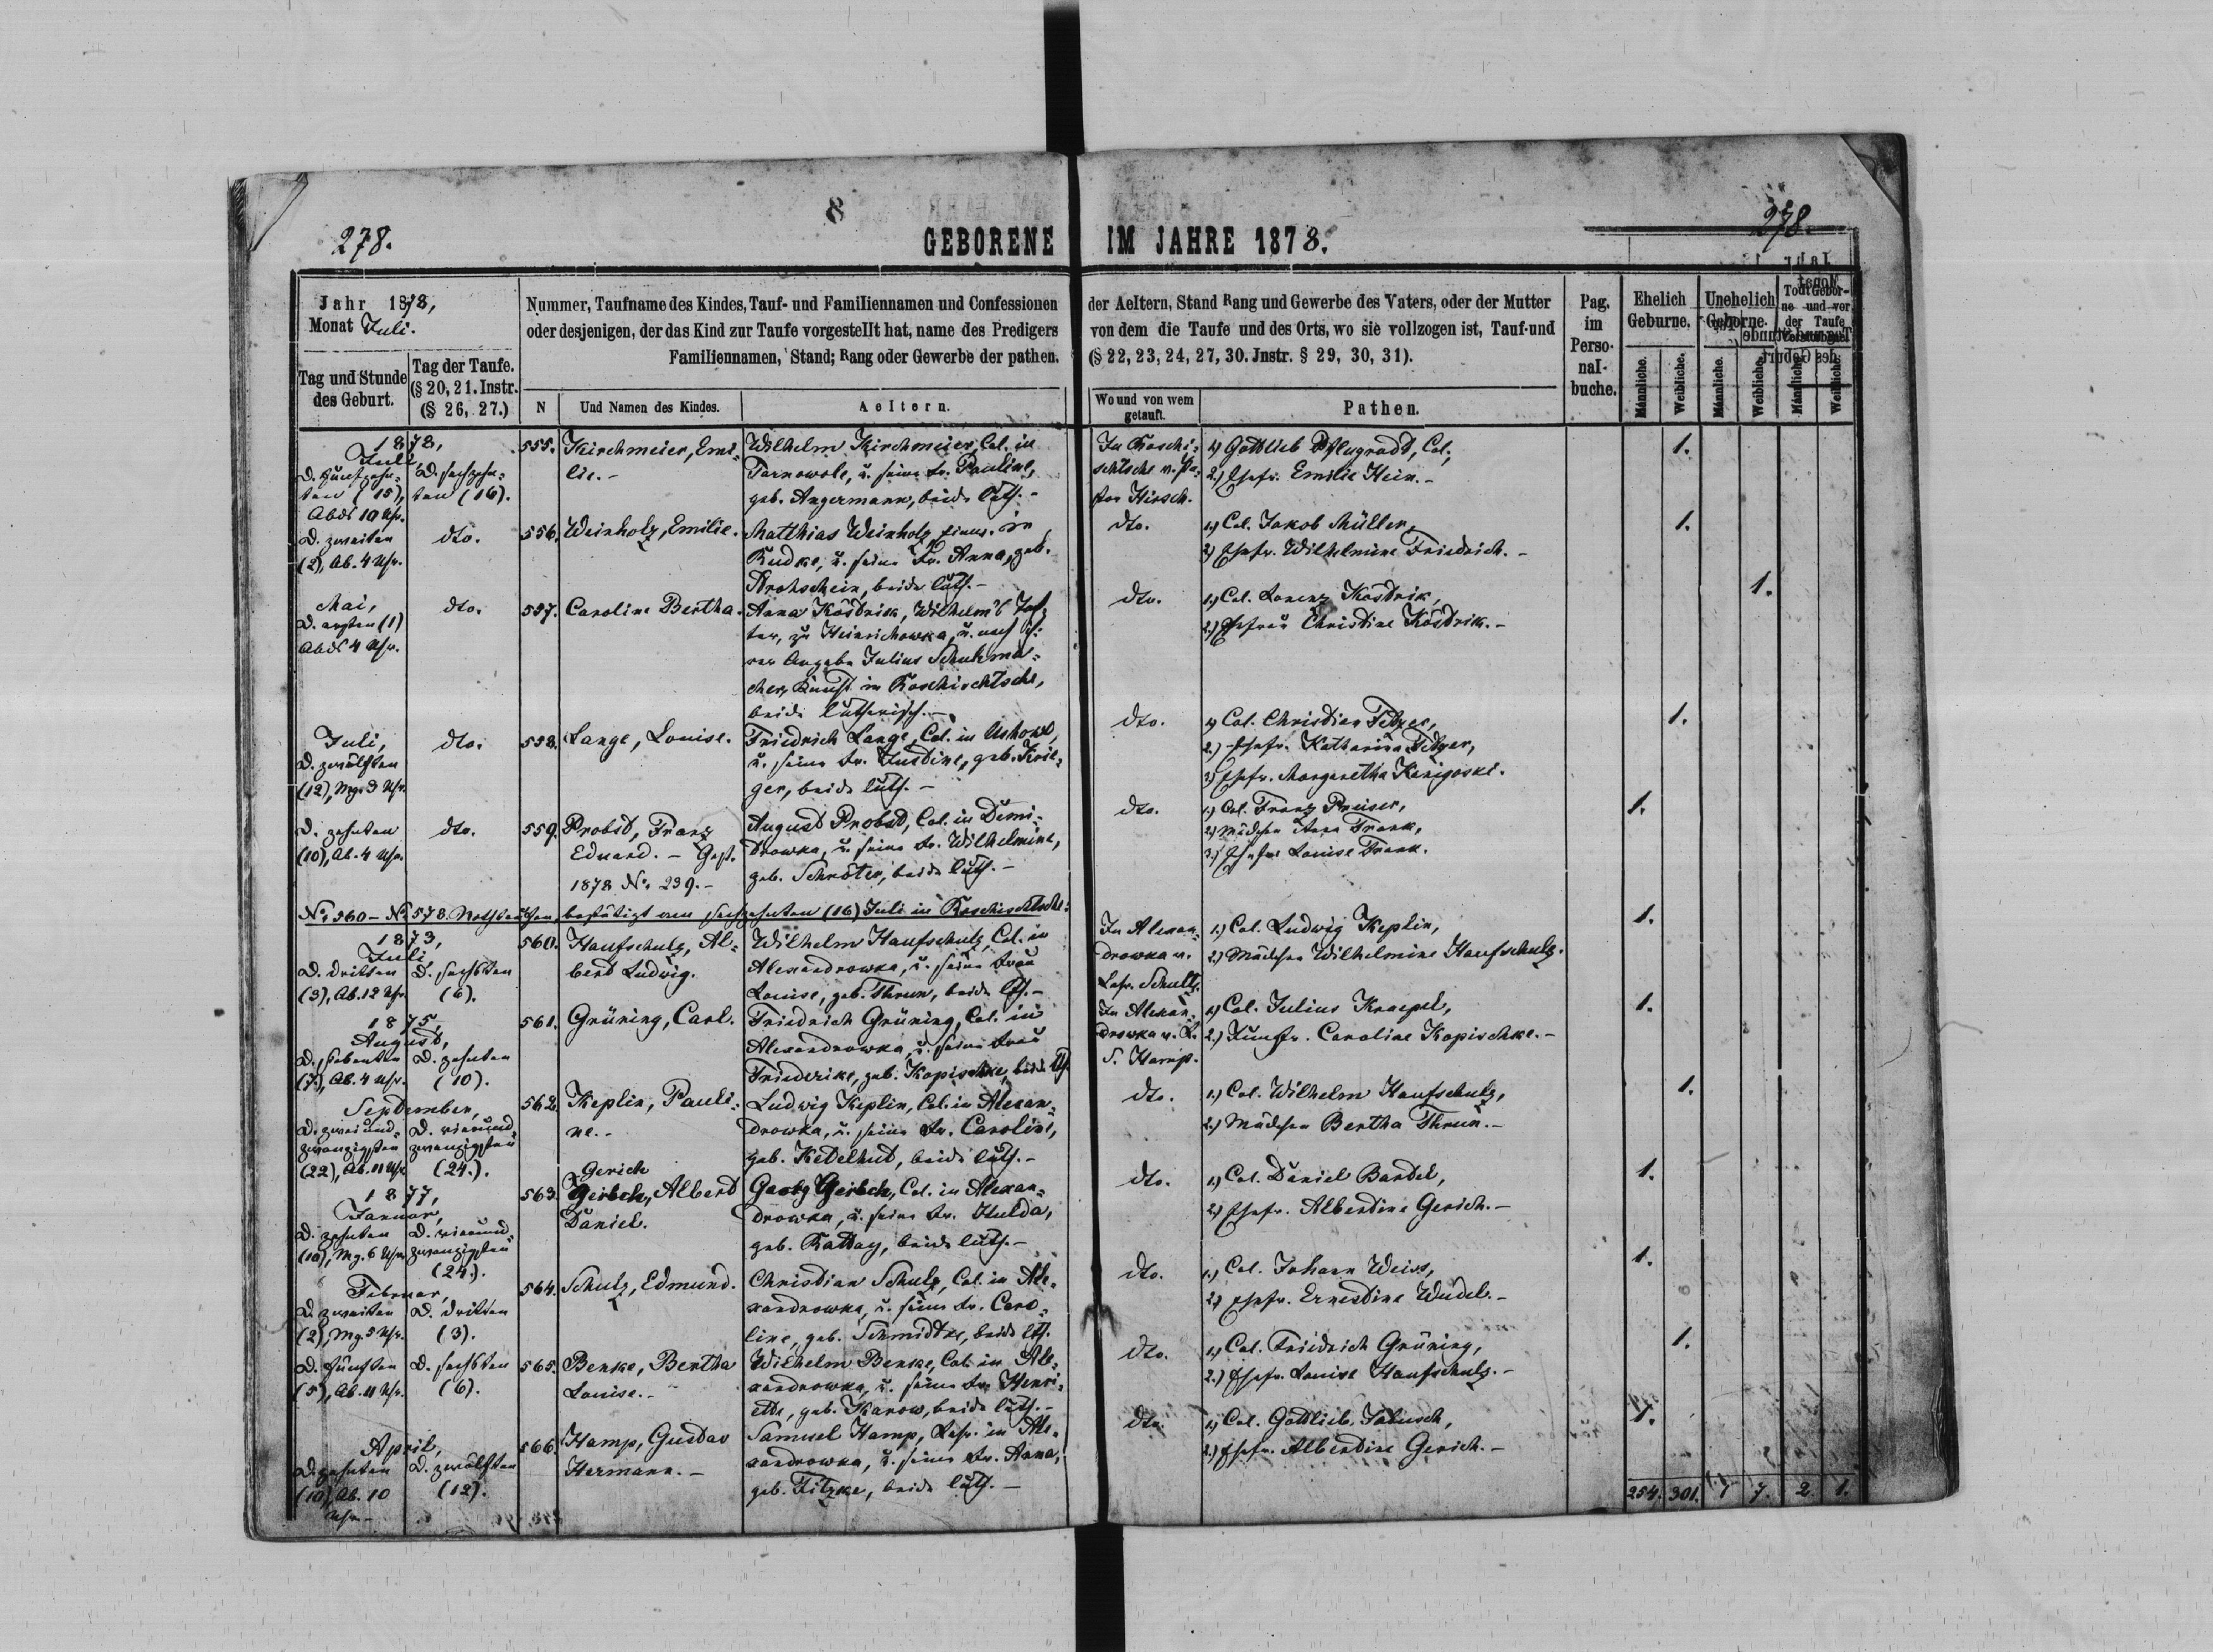 8
278.
278.
GEBORENE IM JAHRE 1878.
Jahr 1878,
Monat Juli.
Tag und Stunde
des Geburt.
Tag der Taufe.
(§ 20, 21. Instr.
(§ 26, 27.)
Nummer, Taufname des Kindes, Tauf- und Familiennamen und Confessionen
oder desjenigen, der das Kind zur Taufe vorgestellt hat, name des Predigers
Familiennamen, Stand; Rang oder Gewerbe der pathen.
N
Und Namen des Kindes.
Aeltern.
der Aeltern, Stand Rang und Gewerbe des Vaters, oder der Mutter
von dem die Taufe und des Orts, wo sie vollzogen ist, Tauf-und
(§ 22, 23, 24, 27, 30. Jnstr. § 29, 30, 31).
Wo und von wem
getauft.
Pathen.
Pag.
im
Perso-
nal-
buche.
Ehelich
Geburne.
Unehelich
Geborne.
Todt Gebor-
ne und vor
der Taufe
Männliche.
Weibliche.
Männliche.
Weibliche.
Männliche.
Weibliche.
1878,
Juli,
D. fünfzehn-
ten (15),
Abds 10 Uhr.
D. sechzehn-
ten (16).
555.
Kirchmeier, Emi-
lie.-
Wilhelm Kirchmeier, Col. in
Tarnowole, u. seine Fr. Pauline,
geb. Angermann, beide luth.-
In Roschi-
schtsche v. Pa-
stor Hirsch.
1.) Gottlieb Pflugradt, Col.,
2.) Ehefr. Emilie Hein.-
1.
D. zweiten
(2), Ab. 4 Uhr.
dto.
556.
Weinholz, Emilie.
Matthias Weinholz, Einw. in
Rudke, u. seine Fr. Anna, geb.
Krohschein, beide luth.-
dto.
1.) Col. Jakob Müller,
2.) Ehefr. Wilhelmine Friedrich.-
1.
Mai,
D. ersten (1)
Abds 4 Uhr.
dto.
557.
Caroline Bertha.
Anna Kösdrik, Wilhelm's Toch-
ter, zu Heinrichowka, u. nach ih-
rer Angabe Julius Schuhma-
cher, Kunst in Roschischtsche,
beide lutherisch.-
dto.
1.) Col. Lorenz Kösdrik,
2.) Ehefrau Christine Kösdrik.-
1.
Juli,
D. zwölften
(12), Mg. 3 Uhr.
dto.
558.
Lange, Louise.
Friedrich Lange, Col. in Ushowe,
u. seine Fr. Justine, geb. Krie-
ger, beide luth.-
dto.
1.) Col. Christian Fitzer,
2.) Ehefr. Katharina Fitzer,
3.) Ehefr. Margaretha Kenigoski.
1.
D. zehnten
(10), Ab. 4 Uhr.
dto.
559.
Probst, Franz
Eduard.- Gest.
1878 No. 239.-
August Probst, Col. in Demi-
drowka, u. seine Fr. Wilhelmine,
geb. Schröter, beide luth.-
dto.
1.) Col. Franz Preiser,
2.) Mädchen Anna Frank,
3.) Ehefr. Louise Frank.
1.
No. 560 - No. 578. Nothtaufen, bestätigt am sechzehnten (16) Juli in Roschischtsche:
1873,
Juli,
D. dritten
(3), Ab. 12 Uhr.
D. sechsten
(6).
560.
Haufschulz, Al-
bert Ludwig.
Wilhelm Haufschulz, Col. in
Alexandrowka, u. seine Frau
Louise, geb. Thrun, beide lth.-
In Alexan-
drowka v.
Lehr. Schultz.
1.) Col. Ludwig Keplin,
2.) Mädchen Wilhelmine Haufschulz.
1.
1875,
August,
D. siebenten
(7), Ab. 4 Uhr.
D. zehnten
(10).
561.
Grüning, Carl.
Friedrich Grüning, Col. in
Alexandrowka, u. seine Frau
Friederike, geb. Kopischke, beide lth.
In Alexan-
drowka v. L.
S. Hamp.
1.) Col. Julius Kraepel,
2.) Jungfr. Caroline Kopischke.-
1.
September,
D. zweiund-
zwanzigsten
(22), Ab. 11 Uhr.
D. vierund-
zwanzigsten
(24.).
562.
Keplin, Pauli-
ne.-
Ludwig Keplin, Col. in Alexan-
drowka, u. seine Fr. Caroline,
geb. Ketelhut, beide luth.-
dto.
1.) Col. Wilhelm Haufschulz,
2.) Mädchen Bertha Thrun.-
1.
1877,
Januar,
D. zehnten
(10), Mg. 6 Uhr.
D. vierund-
zwanzigsten
(24.).
563.
Gerich
Gerbch, Albert
Daniel.
Georg Gerbch, Col. in Alexan-
drowka, u. seine Fr. Hulda,
geb. Rattay, beide luth.-
dto.
1.) Col. Daniel Bardel,
2.) Ehefr. Albertine Gerich.-
1.
Februar,
D. zweiten
(2), Mg. 5 Uhr.
D. dritten
(3).
564.
Schulz, Edmund.
Christian Schulz, Col. in Ale-
xandrowka, u. seine Fr. Caro-
line, geb. Schmidtke, beide lth.
dto.
1.) Col. Johann Weiss,
2.) Ehefr. Ernestine Weidel.-
1.
D. fünften
(5), Ab. 11 Uhr.
D. sechsten
(6).
565.
Benke, Bertha
Louise.-
Wilhelm Benke, Col. in Ale-
xandrowka, u. seine Fr. Henri-
ette, geb. Karow, beide luth.-
dto.
1.) Col. Friedrich Grüning,
2.) Ehefr. Louise Haufschulz.-
1.
April,
D. zehnten
(10), Ab. 10
Uhr.-
D. zwölften
(12).
566.
Hamp, Gustav
Hermann.-
Samuel Hamp, Lehr. in Ale-
xandrowka, u. seine Fr. Anna,
geb. Fitzke, beide luth.-
dto.
1.) Col. Gottlieb Jabusch,
2.) Ehefr. Albertine Gerich.-
1.
254. 301. 7 7. 2. 1.